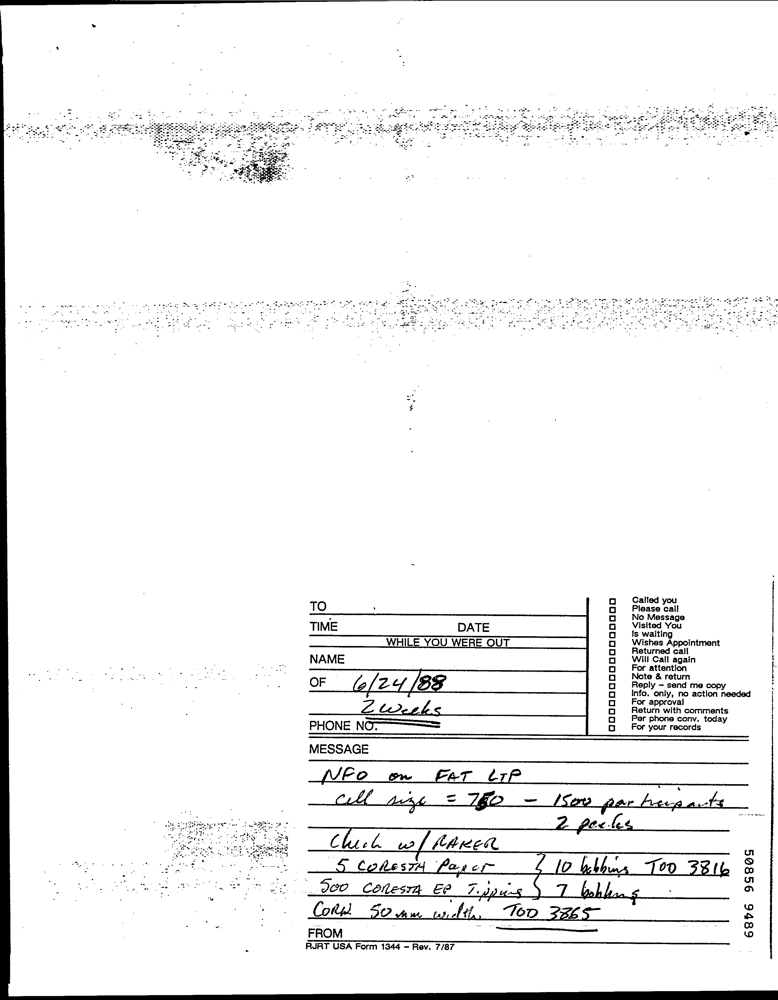 TO
TIME DATE
WHILE YOU WERE OUT
NAME
OF 6/24/88
2 weeks
PHONE NO.
☐ Called you
☐ Please call
☐ No Message
☐ Visited You
☐ Is waiting
☐ Wishes Appointment
☐ Returned call
☐ Will Call again
☐ For attention
☐ Note & return
☐ Reply – send me copy
☐ Info. only, no action needed
☐ For approval
☐ Return with comments
☐ Per phone conv. today
☐ For your records
MESSAGE
NFO on FAT LTP
Cell size = 750 – 1500 participants
2 packs
Check w/ RAKER
5 CORESTA Paper } 10 bobbins TOD 3816
500 CORESTA EP Tipping } 7 bobbins
CORK 50 mm width TOD 3865
FROM
RJRT USA Form 1344 – Rev. 7/87
50856 9489